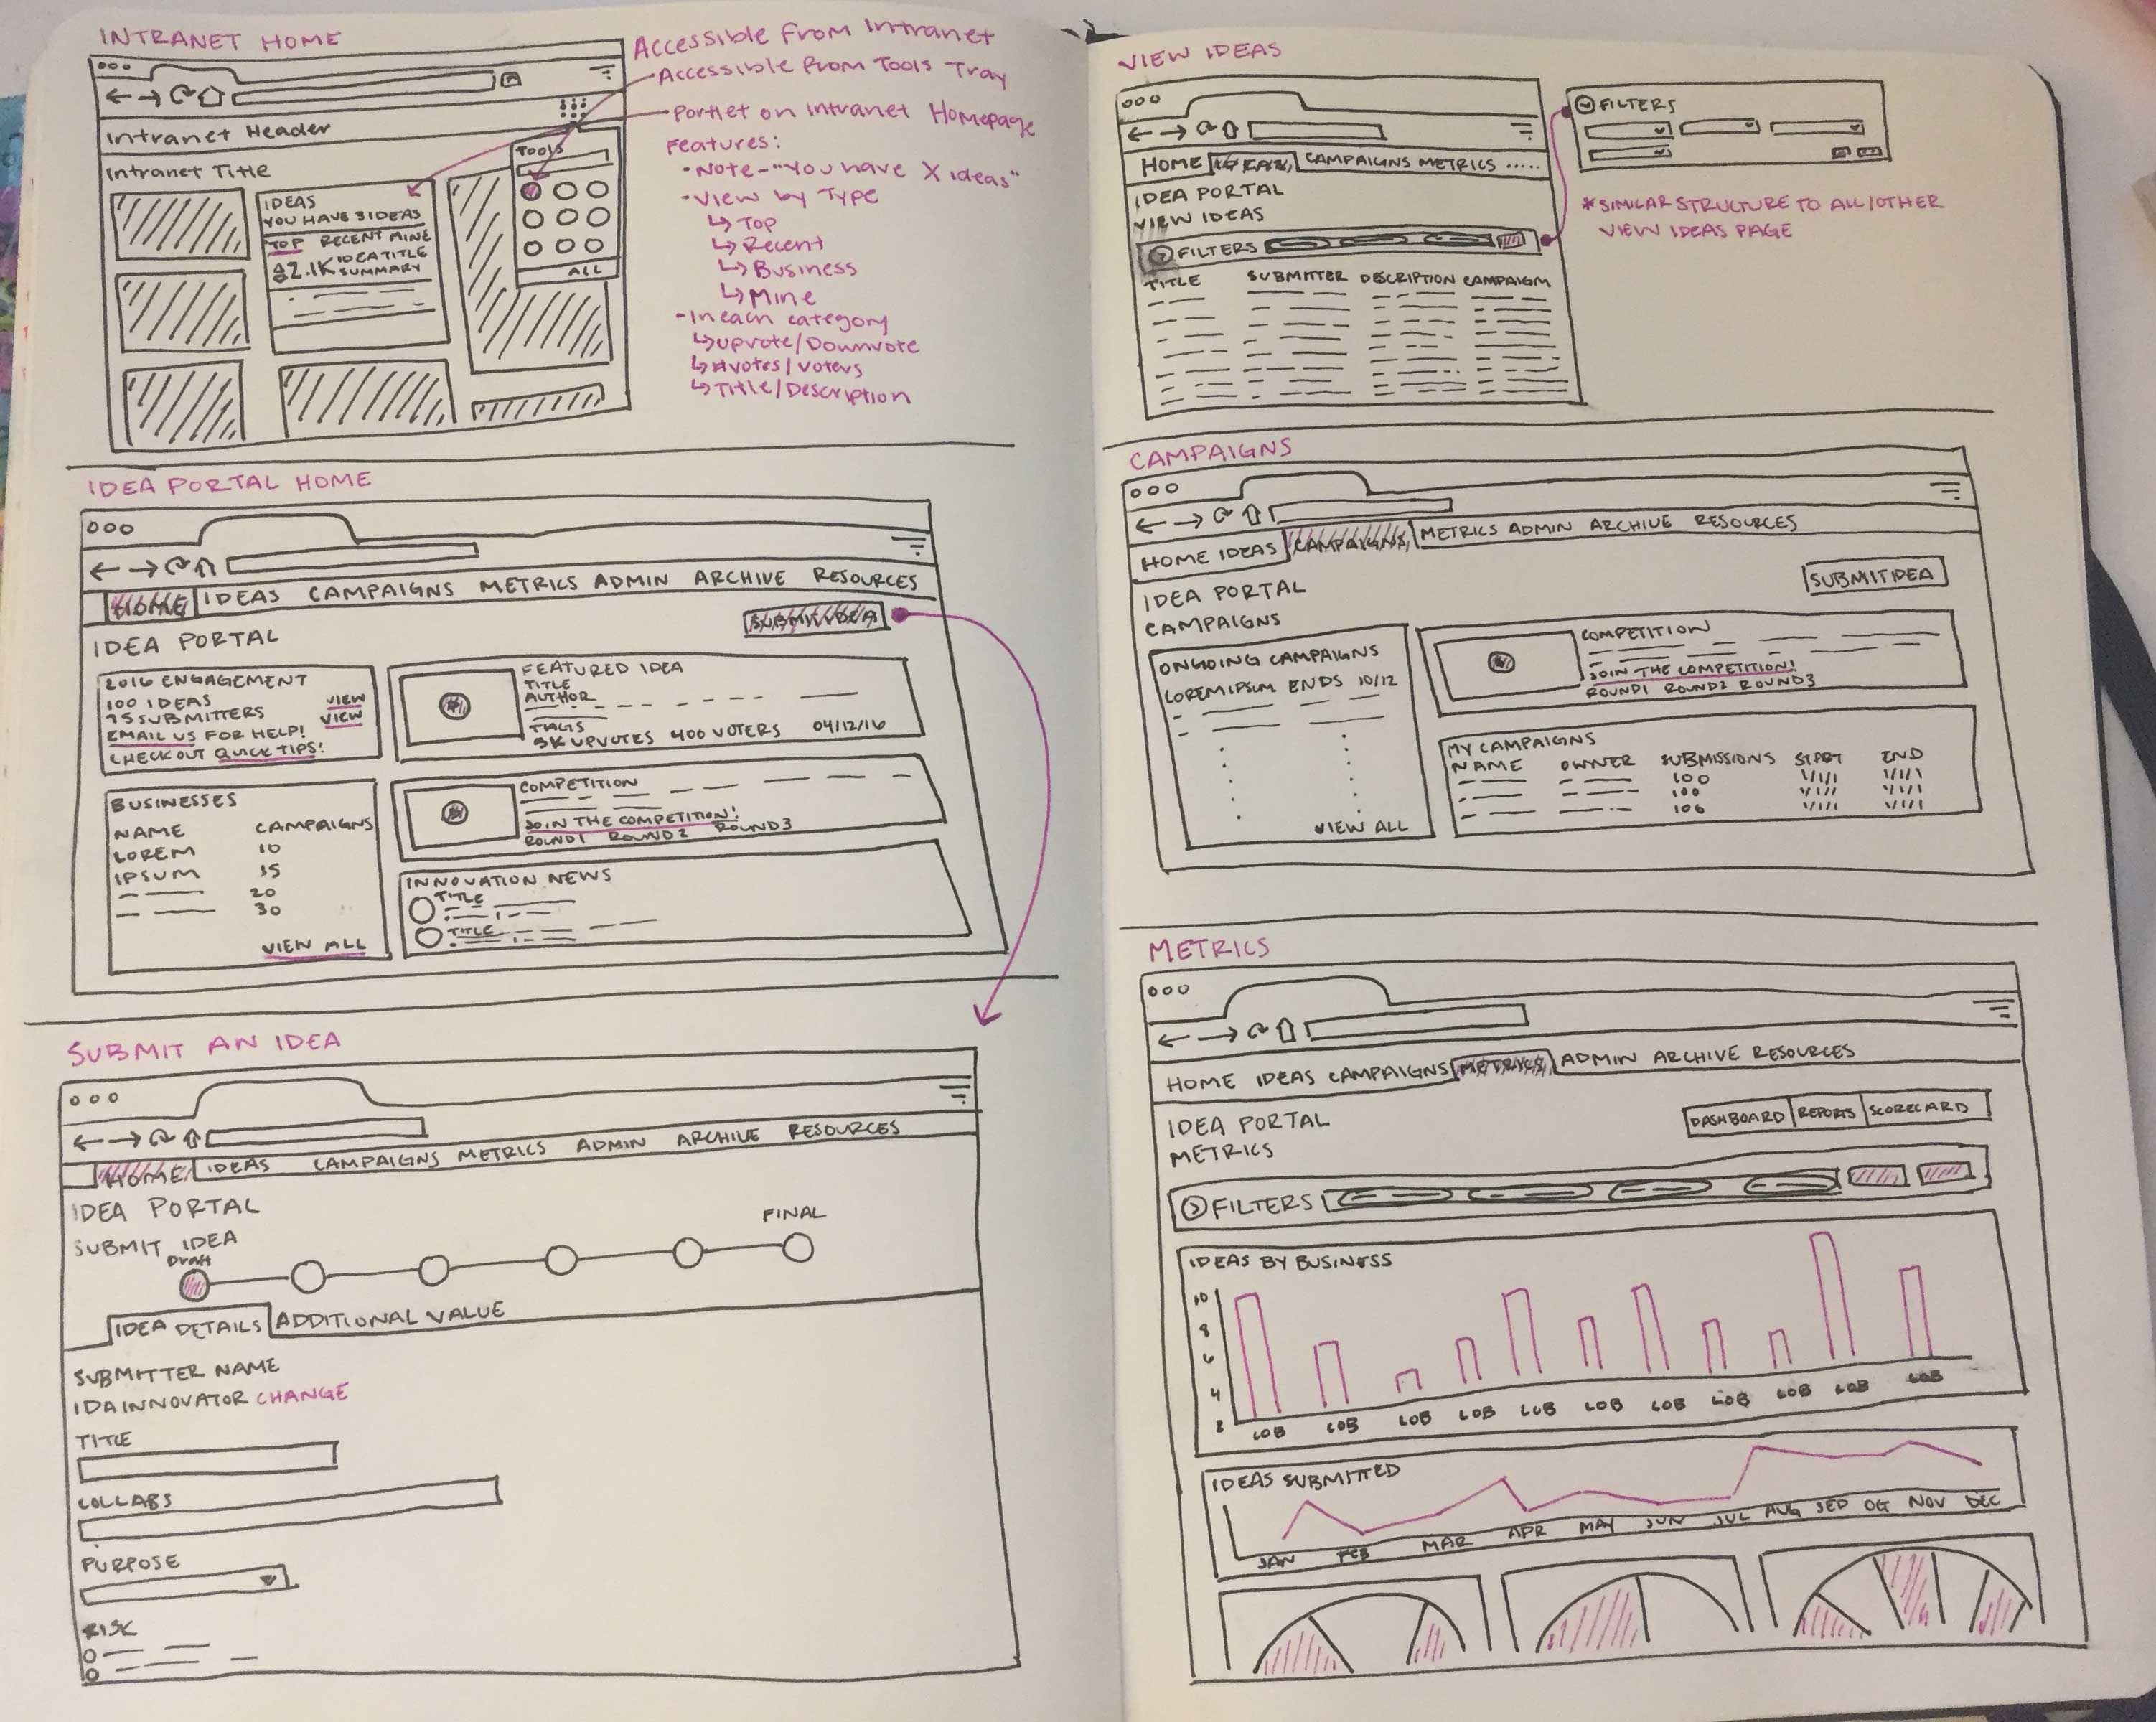 INTRANET HOME
Intranet Header
Intranet Title
IDEAS
YOU HAVE 3 IDEAS
TOP RECENT MINE
2.1K IDEA TITLE
SUMMARY
TOOLS
ALL
Accessible from Intranet
Accessible from Tools Tray
Portlet on Intranet Homepage
Features:
-Note-"You have X ideas"
-View by Type
↳Top
↳Recent
↳Business
↳Mine
-In each category
↳Upvote/Downvote
↳#votes/voters
↳Title/Description
IDEA PORTAL HOME
HOME IDEAS CAMPAIGNS METRICS ADMIN ARCHIVE RESOURCES
IDEA PORTAL
SUBMIT IDEA
2016 ENGAGEMENT
100 IDEAS VIEW
75 SUBMITTERS VIEW
EMAIL US FOR HELP!
CHECK OUT QUICK TIPS!
BUSINESSES
NAME CAMPAIGNS
LOREM 10
IPSUM 15
20
30
VIEW ALL
FEATURED IDEA
TITLE
AUTHOR
TAGS
3K UPVOTES 400 VOTERS 04/12/16
COMPETITION
JOIN THE COMPETITION!
ROUND1 ROUND2 ROUND3
INNOVATION NEWS
TITLE
TITLE
SUBMIT AN IDEA
HOME IDEAS CAMPAIGNS METRICS ADMIN ARCHIVE RESOURCES
IDEA PORTAL
SUBMIT IDEA
Draft
FINAL
IDEA DETAILS ADDITIONAL VALUE
SUBMITTER NAME
IDA INNOVATOR CHANGE
TITLE
COLLABS
PURPOSE
RISK
VIEW IDEAS
HOME IDEAS CAMPAIGNS METRICS .....
IDEA PORTAL
VIEW IDEAS
FILTERS
TITLE SUBMITTER DESCRIPTION CAMPAIGN
FILTERS
*SIMILAR STRUCTURE TO ALL/OTHER
VIEW IDEAS PAGE
CAMPAIGNS
HOME IDEAS CAMPAIGNS METRICS ADMIN ARCHIVE RESOURCES
IDEA PORTAL
CAMPAIGNS
SUBMIT IDEA
ONGOING CAMPAIGNS
LOREM IPSUM ENDS 10/12
VIEW ALL
COMPETITION
JOIN THE COMPETITION!
ROUND1 ROUND2 ROUND3
MY CAMPAIGNS
NAME OWNER SUBMISSIONS START END
100 1/1/1 1/1/1
100 1/1/1 1/1/1
100 1/1/1 1/1/1
METRICS
HOME IDEAS CAMPAIGNS METRICS ADMIN ARCHIVE RESOURCES
IDEA PORTAL
METRICS
DASHBOARD REPORTS SCORECARD
FILTERS
IDEAS BY BUSINESS
10
8
6
4
2
LOB LOB LOB LOB LOB LOB LOB LOB LOB LOB LOB
IDEAS SUBMITTED
JAN FEB MAR APR MAY JUN JUL AUG SEP OCT NOV DEC